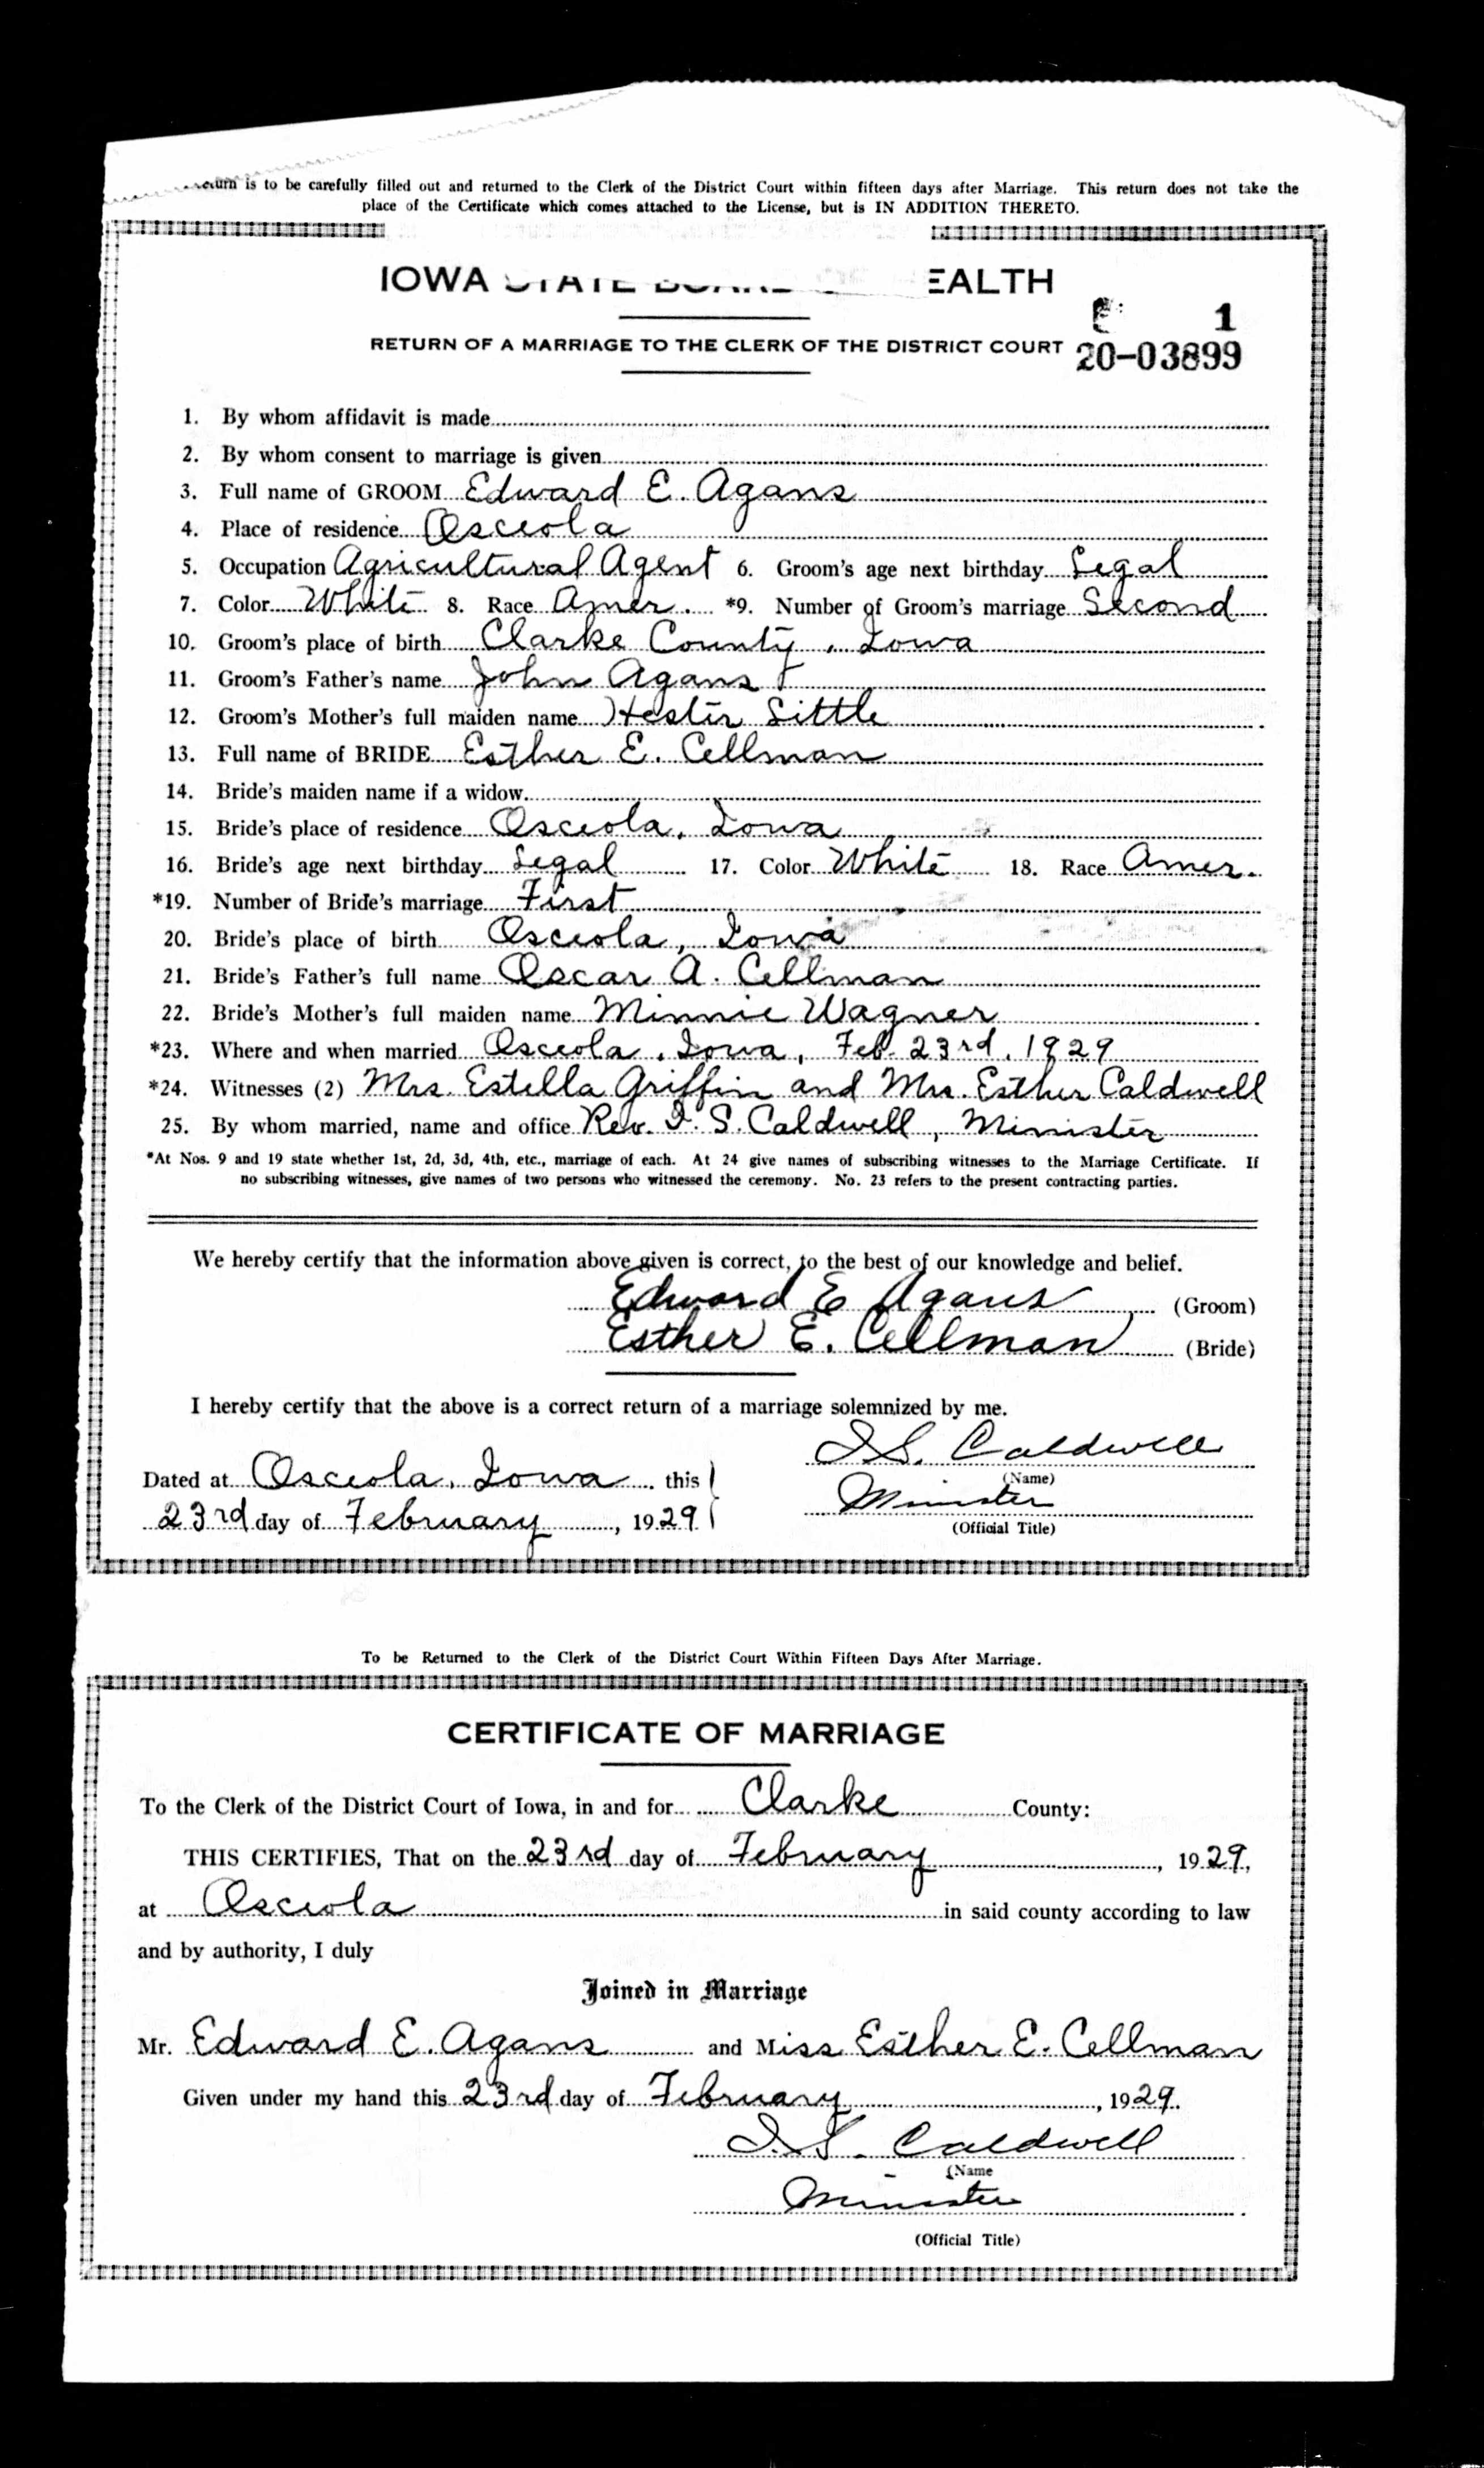 is to be carefully filled out and returned to the Clerk of the District Court within fifteen days after Marriage. This return does not take the
place of the Certificate which comes attached to the License, but is IN ADDITION THERETO.
IOWA STATE BOARD EALTH
1
RETURN OF A MARRIAGE TO THE CLERK OF THE DISTRICT COURT 20-03899
1. By whom affidavit is made
2. By whom consent to marriage is given
3. Full name of GROOM Edward E. Agans
4. Place of residence Osceola
5. Occupation Agricultural Agent 6. Groom's age next birthday Legal
7. Color White 8. Race Amer. *9. Number of Groom's marriage Second
10. Groom's place of birth Clarke County, Iowa
11. Groom's Father's name John Agans
12. Groom's Mother's full maiden name Hester Little
13. Full name of BRIDE Esther E. Cellman
14. Bride's maiden name if a widow
15. Bride's place of residence Osceola, Iowa
16. Bride's age next birthday Legal 17. Color White 18. Race Amer.
*19. Number of Bride's marriage First
20. Bride's place of birth Osceola, Iowa
21. Bride's Father's full name Oscar A. Cellman
22. Bride's Mother's full maiden name Minnie Wagner
*23. Where and when married Osceola, Iowa, Feb. 23rd, 1929
*24. Witnesses (2) Mrs. Estella Griffin and Mrs. Esther Caldwell
25. By whom married, name and office Rev. I. S. Caldwell, Minister
*At Nos. 9 and 19 state whether 1st, 2d, 3d, 4th, etc., marriage of each. At 24 give names of subscribing witnesses to the Marriage Certificate. If
no subscribing witnesses, give names of two persons who witnessed the ceremony. No. 23 refers to the present contracting parties.
We hereby certify that the information above given is correct, to the best of our knowledge and belief.
Edward E Agans (Groom)
Esther E. Cellman (Bride)
I hereby certify that the above is a correct return of a marriage solemnized by me.
I.S. Caldwell
Dated at Osceola, Iowa this (Name)
Minister
23rd day of February, 1929 (Official Title)
To be Returned to the Clerk of the District Court Within Fifteen Days After Marriage.
CERTIFICATE OF MARRIAGE
To the Clerk of the District Court of Iowa, in and for Clarke County:
THIS CERTIFIES, That on the 23rd day of February, 1929,
at Osceola in said county according to law
and by authority, I duly
Joined in Marriage
Mr. Edward E. Agans and Miss Esther E. Cellman
Given under my hand this 23rd day of February, 1929.
I.S. Caldwell
(Name
Minister
(Official Title)